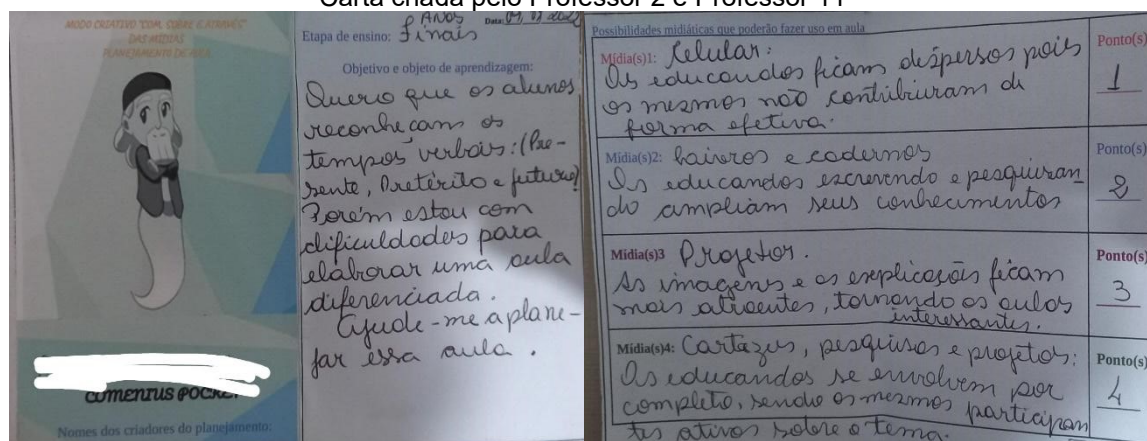 Carta criada pelo Professor 2 e Professor 11
MODO CRIATIVO "COM, SOBRE E ATRAVÉS"
DAS MÍDIAS
PLANEJAMENTO DE AULA
COMENIUS POCKET
Nomes dos criadores do planejamento:
Anos Data:
Etapa de ensino: Finais
Objetivo e objeto de aprendizagem:
Quero que os alunos
reconheçam os
tempos verbais: (Pre-
sente, Pretérito e futuro)
Porém estou com
dificuldades para
elaborar uma aula
diferenciada.
Ajude-me a plane-
jar essa aula.
Possibilidades midiáticas que poderão fazer uso em aula
Mídia(s)1: Celular: Ponto(s)
Os educandos ficam dispersos pois 1
os mesmos não contribuiram de
forma efetiva.
Mídia(s)2: e cadernos Ponto(s)
Os educandos escrevendo e pesquisan 2
do ampliam seus conhecimentos
Mídia(s)3 Projetor. Ponto(s)
As imagens e as explicações ficam 3
mais atraentes, tornando as aulas
interessantes.
Mídia(s)4: Cartazes, pesquisas e projetos: Ponto(s)
Os educandos se envolvem por 4
completo, sendo os mesmos participan
tes ativos sobre o tema.